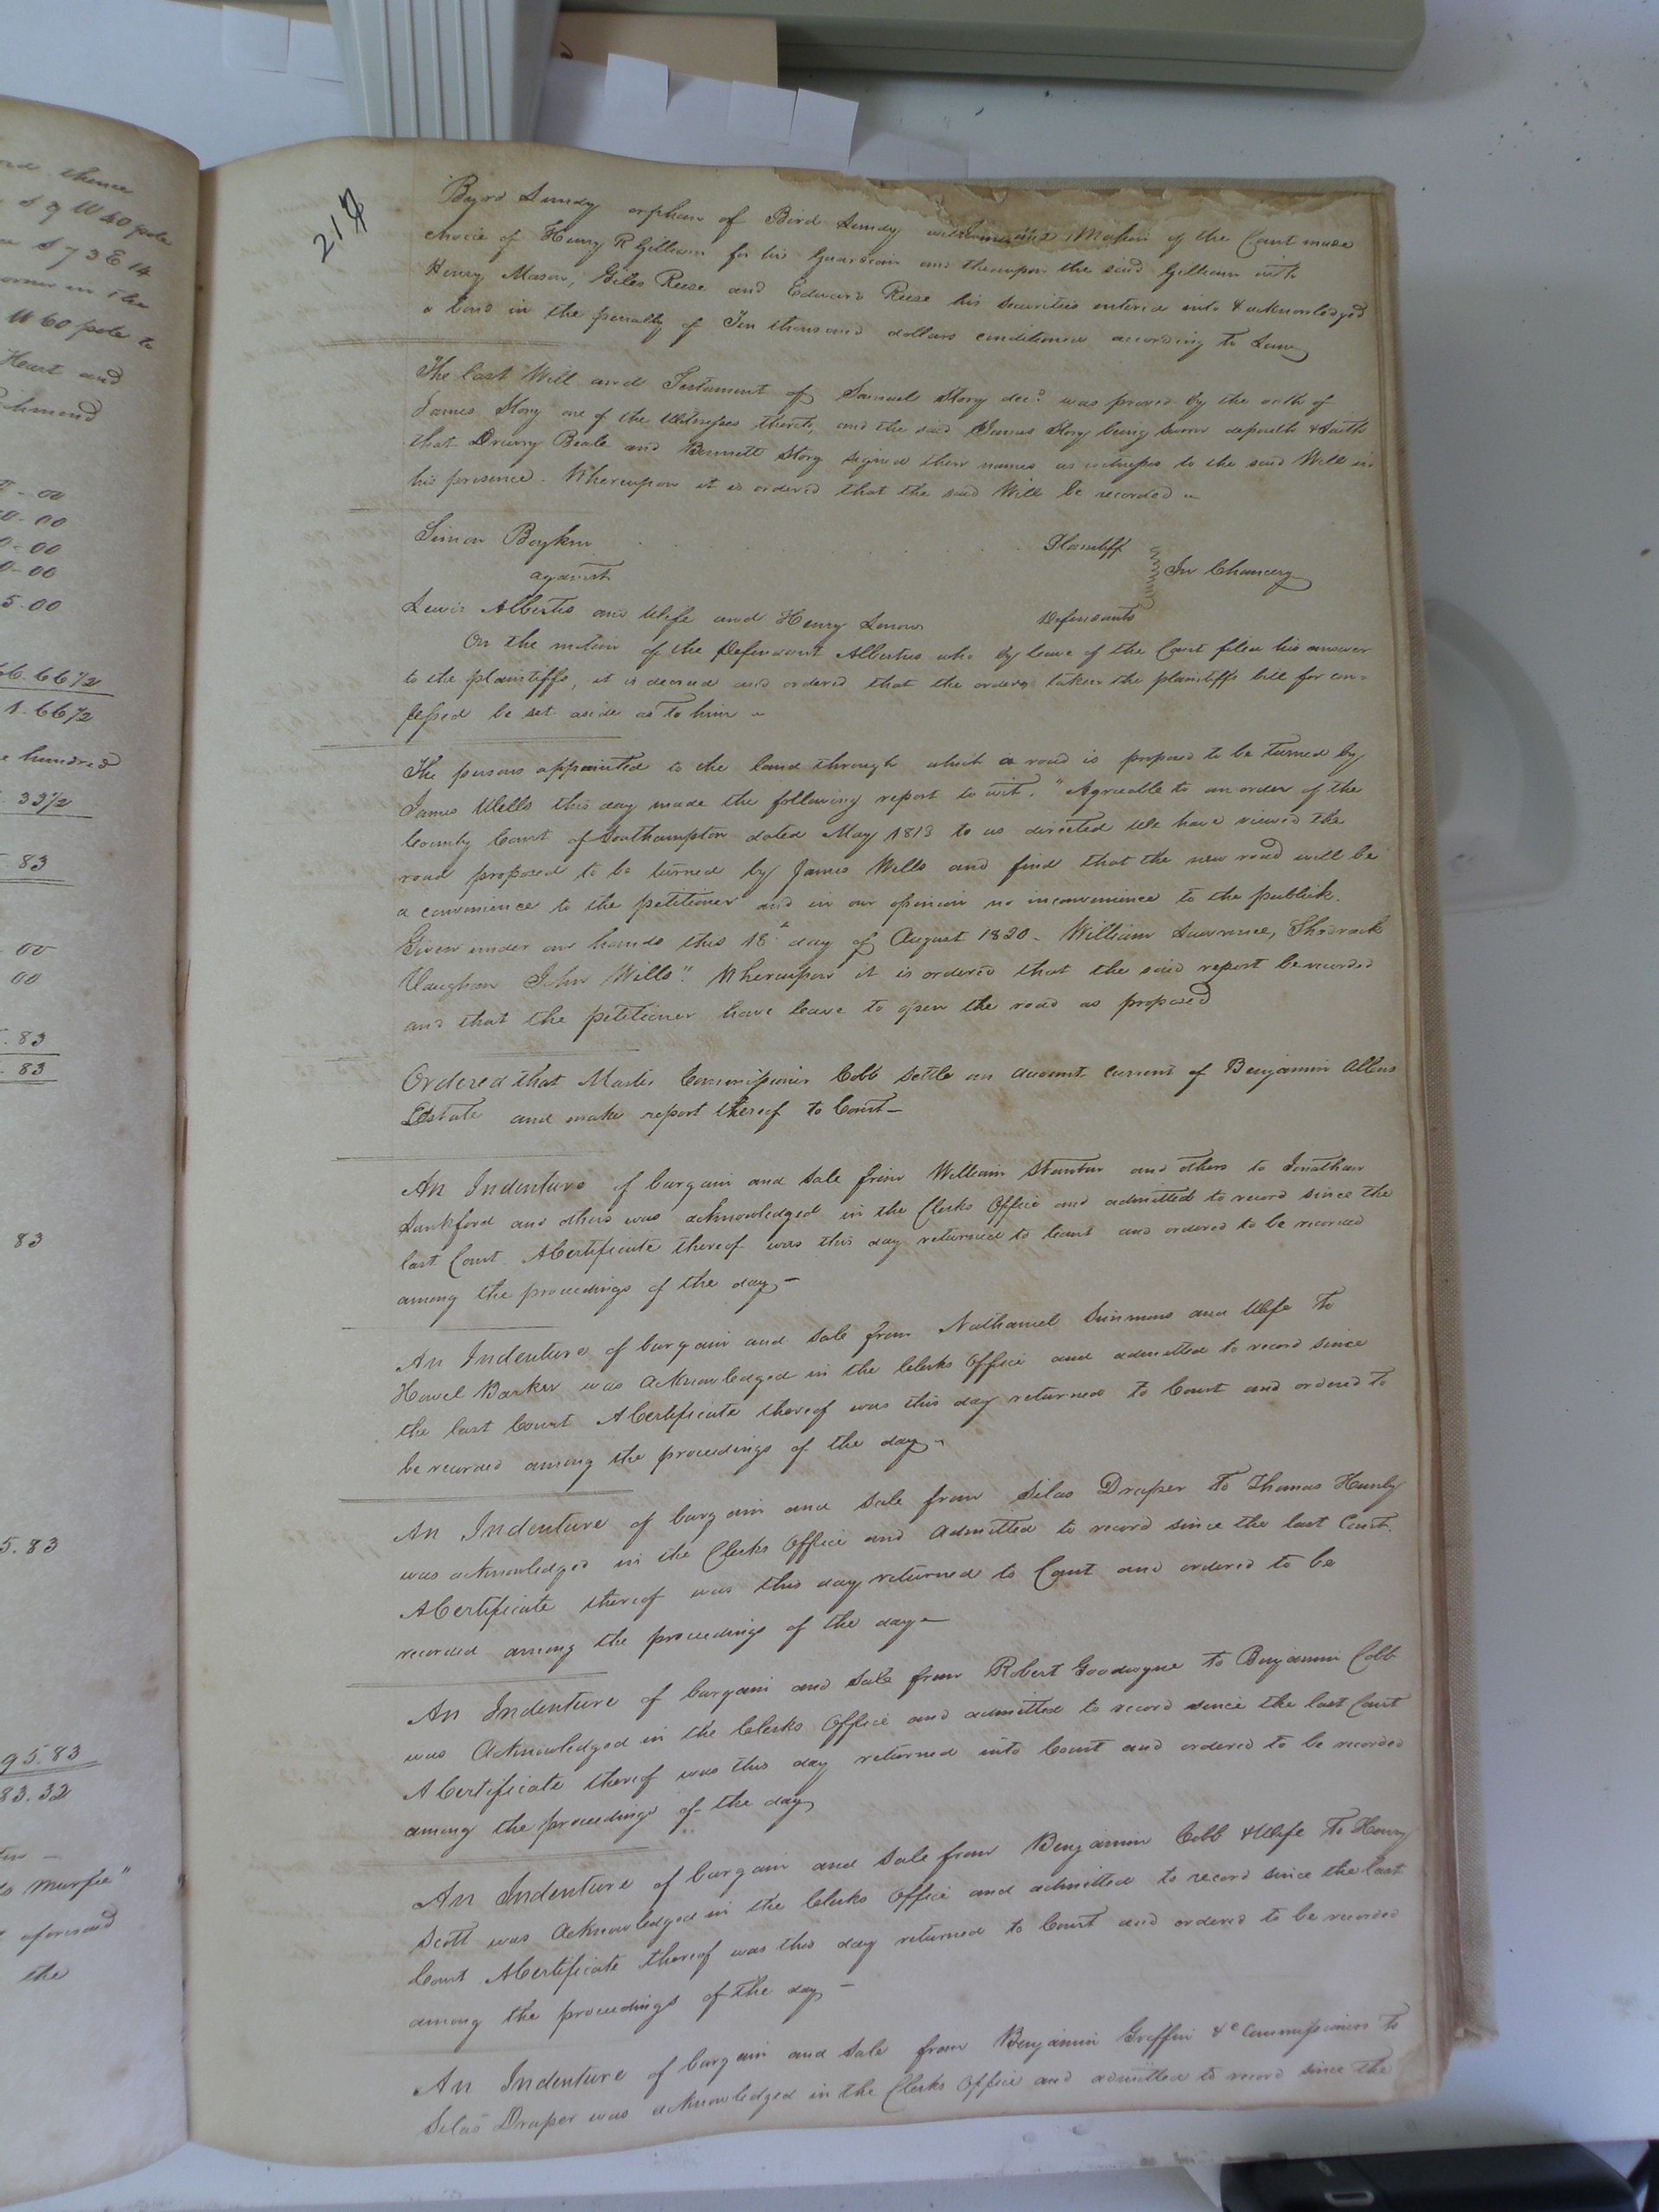 ord thence
S 9 W 40 pole
S 73 E 14
corner in the
W 60 pole to
Heart and
chmond
- 00
0 - 00
0 - 00
0 - 00
5 . 00
66. 66 1/2
1. 66 1/2
hundred
. 33 1/2
. 83
. 00
00
. 83
. 83
83
5. 83
95. 83
83. 32
Murfee"
aforesaid
the
217
Byrd Lundy orphan of Bird Lundy with the Motion of the Court made
choice of Henry R Gilliam for his Guardian and thereupon the said Gilliam with
Henry Mason, Giles Reese and Edward Reese his securities entered into & acknowledged
a bond in the penalty of Ten thousand dollars conditioned according to Law
The last Will and Testament of Samuel Story decd. was proved by the oath of
James Story one of the Witnesses thereto, and the said James Story being sworn deposeth & saith
that Drewry Beale and Bennett Story signed their names as witnesses to the said Will in
his presence. Whereupon it is ordered that the said Will be recorded
Simon Boykin Plaintiff
against In Chancery
Lewis Albertis and Wife and Henry Lenow Defendants
On the motion of the Defendant Albertus who by leave of the Court filed his answer
to the plaintiffs, it is decreed and ordered that the orders taken the plaintiffs bill for con=
fessed be set aside as to him
The persons appointed to the land through which a road is proposed to be turned by
James Wells this day made the following report to wit. "Agreeable to an order of the
County Court of Southampton dated May 1813 to us directed We have viewed the
road proposed to be turned by James Wells and find that the new road will be
a convenience to the petitioner and in our opinion no inconvenience to the publick.
Given under our hands this 18th day of August 1820 - William Lawrence, Shadrack
Vaughan John Wills". Whereupon it is ordered that the said report be recorded
and that the petitioner have leave to open the road as proposed
Ordered that Master Commissioner Cobb settle an account current of Benjamin Allens
Estate and make report thereof to Court -
An Indenture of bargain and sale from William Stanton and others to Jonathan
Lankford and others was acknowledged in the Clerks Office and admitted to record since the
last Court A Certificate thereof was this day returned to Court and ordered to be recorded
among the proceedings of the day -
An Indenture of bargain and sale from Nathaniel Simmons and Wife to
Howel Barker was acknowledged in the Clerks Office and admitted to record since
the last Court A Certificate thereof was this day returned to Court and ordered to
be recorded among the proceedings of the day -
An Indenture of bargain and sale from Silas Draper to Thomas Hunly
was acknowledged in the Clerks Office and admitted to record since the last Court.
A Certificate thereof was this day returned to Court and ordered to be
recorded among the proceedings of the day -
An Indenture of bargain and sale from Robert Goodwyne to Benjamin Cobb
was acknowledged in the Clerks Office and admitted to record since the last Court
A Certificate thereof was this day returned into Court and ordered to be recorded
among the proceedings of the day
An Indenture of bargain and sale from Benjamin Cobb & Wife to Henry
Scott was acknowledged in the Clerks Office and admitted to record since the last
Court A Certificate thereof was this day returned to Court and ordered to be recorded
among the proceedings of the day -
An Indenture of bargain and sale from Benjamin Griffin &c Commissioners to
Silas Draper was acknowledged in the Clerks Office and admitted to record since the